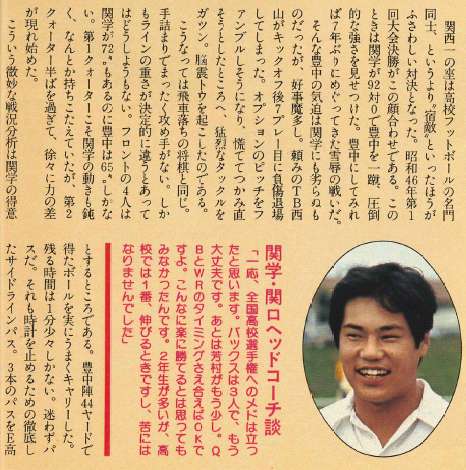 関西一の座は高校フットボールの名門
同士、というより“宿敵”といったほうが
ふさわしい対決となった。昭和46年第1
回大会決勝がこの顔合わせである。この
ときは関学が92対0で豊中を一蹴、圧倒
的な強さを見せつけた。豊中にしてみれ
ば7年ぶりにめぐってきた雪辱の戦いだ。
そんな豊中の気迫は関学にも劣らぬも
のだったが、好事魔多し。頼みのTB西
山がキックオフ後7プレー目に負傷退場
してしまった。オプションのピッチをフ
ァンブルしそうになり、慌ててつかみ直
そうとしたところへ、猛烈なタックルを
ガツン。脳震トウを起こしたのである。
こうなっては飛車落ちの将棋と同じ。
手詰まりでまったく攻め手がない。しか
もラインの重さが決定的に違うとあって
はどうしようもない。フロントの4人は
関学が72㌔もあるのに豊中は65㌔しかな
い。第1クォーターこそ関学の動きも鈍
く、なんとか持ちこたえていたが、第2
クォーター半ばを過ぎて、徐々に力の差
が現れ始めた。
こういう微妙な戦況分析は関学の得意
とするところである。豊中陣44ヤードで
得たボールを実にうまくキャリーした。
残る時間は1分少々しかない。迷わずパ
スだ。それも時計を止めるための徹底し
たサイドラインパス。3本のパスをE高
関学・関口ヘッドコーチ談
「一応、全国高校選手権へのメドは立っ
たと思います。バックスは3人で、もう
大丈夫です。あとは芳村がもう少し。Q
BとWRのタイミングさえ合えばOKで
すよ。こんなに楽に勝てるとは思っても
みなかったんです。2年生が多いが、高
校では1番、伸びるときですし、苦には
なりませんでした」